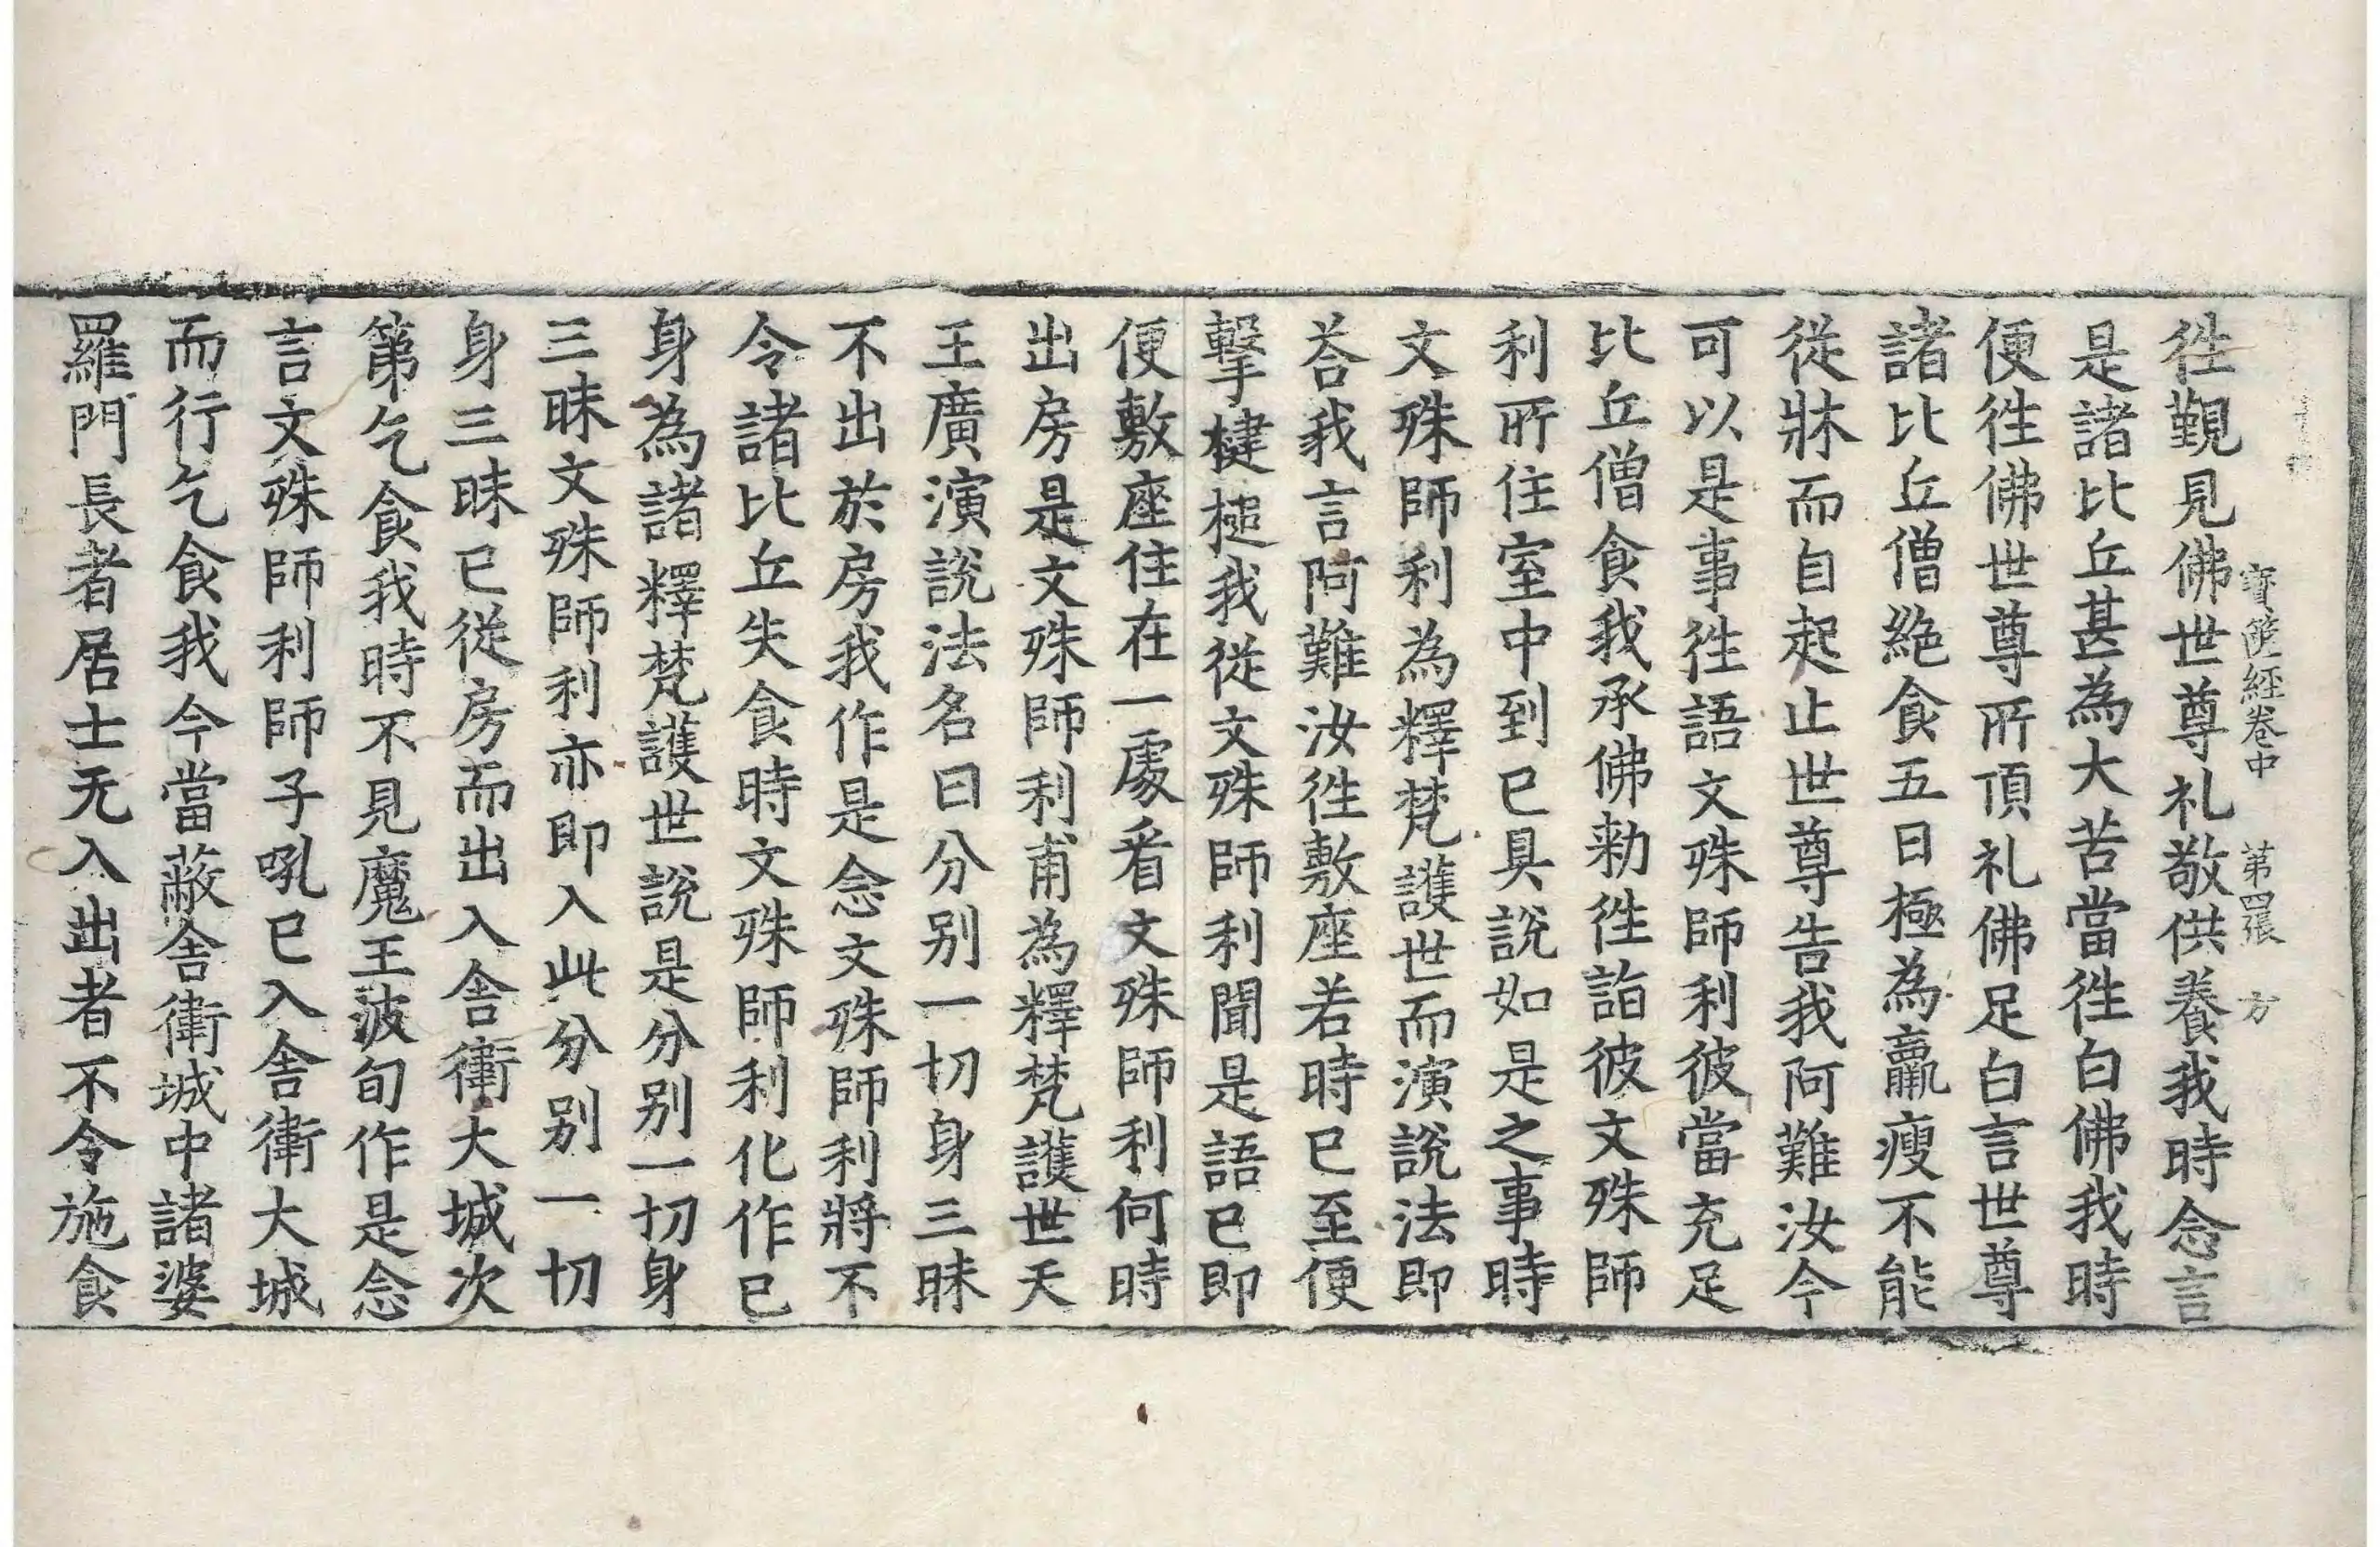 寶篋經卷中 第四張 方
徃覲見佛世尊礼敬供養我時念言
是諸比丘甚為大苦當徃白佛我時
便徃佛世尊所頂礼佛足白言世尊
諸比丘僧絶食五日極為羸瘦不能
従牀而自起止世尊告我阿難汝今
可以是事徃語文殊師利彼當充足
比丘僧食我承佛勑徃詣彼文殊師
利所住室中到已具說如是之事時
文殊師利為釋梵護世而演說法即
荅我言阿難汝徃敷座若時已至便
擊楗槌我従文殊師利聞是語已即
便敷座住在一處看文殊師利何時
出房是文殊師利甫為釋梵護世天
王廣演說法名曰分别一切身三昧
不出於房我作是念文殊師利將不
令諸比丘失食時文殊師利化作已
身為諸釋梵護世說是分别一切身
三昧文殊師利亦即入此分别一切
身三昧已従房而出入舎衛大城次
第乞食我時不見魔王波旬作是念
言文殊師利師子吼已入舎衛大城
而行乞食我今當蔽舎衛城中諸婆
羅門長者居士无入出者不令施食